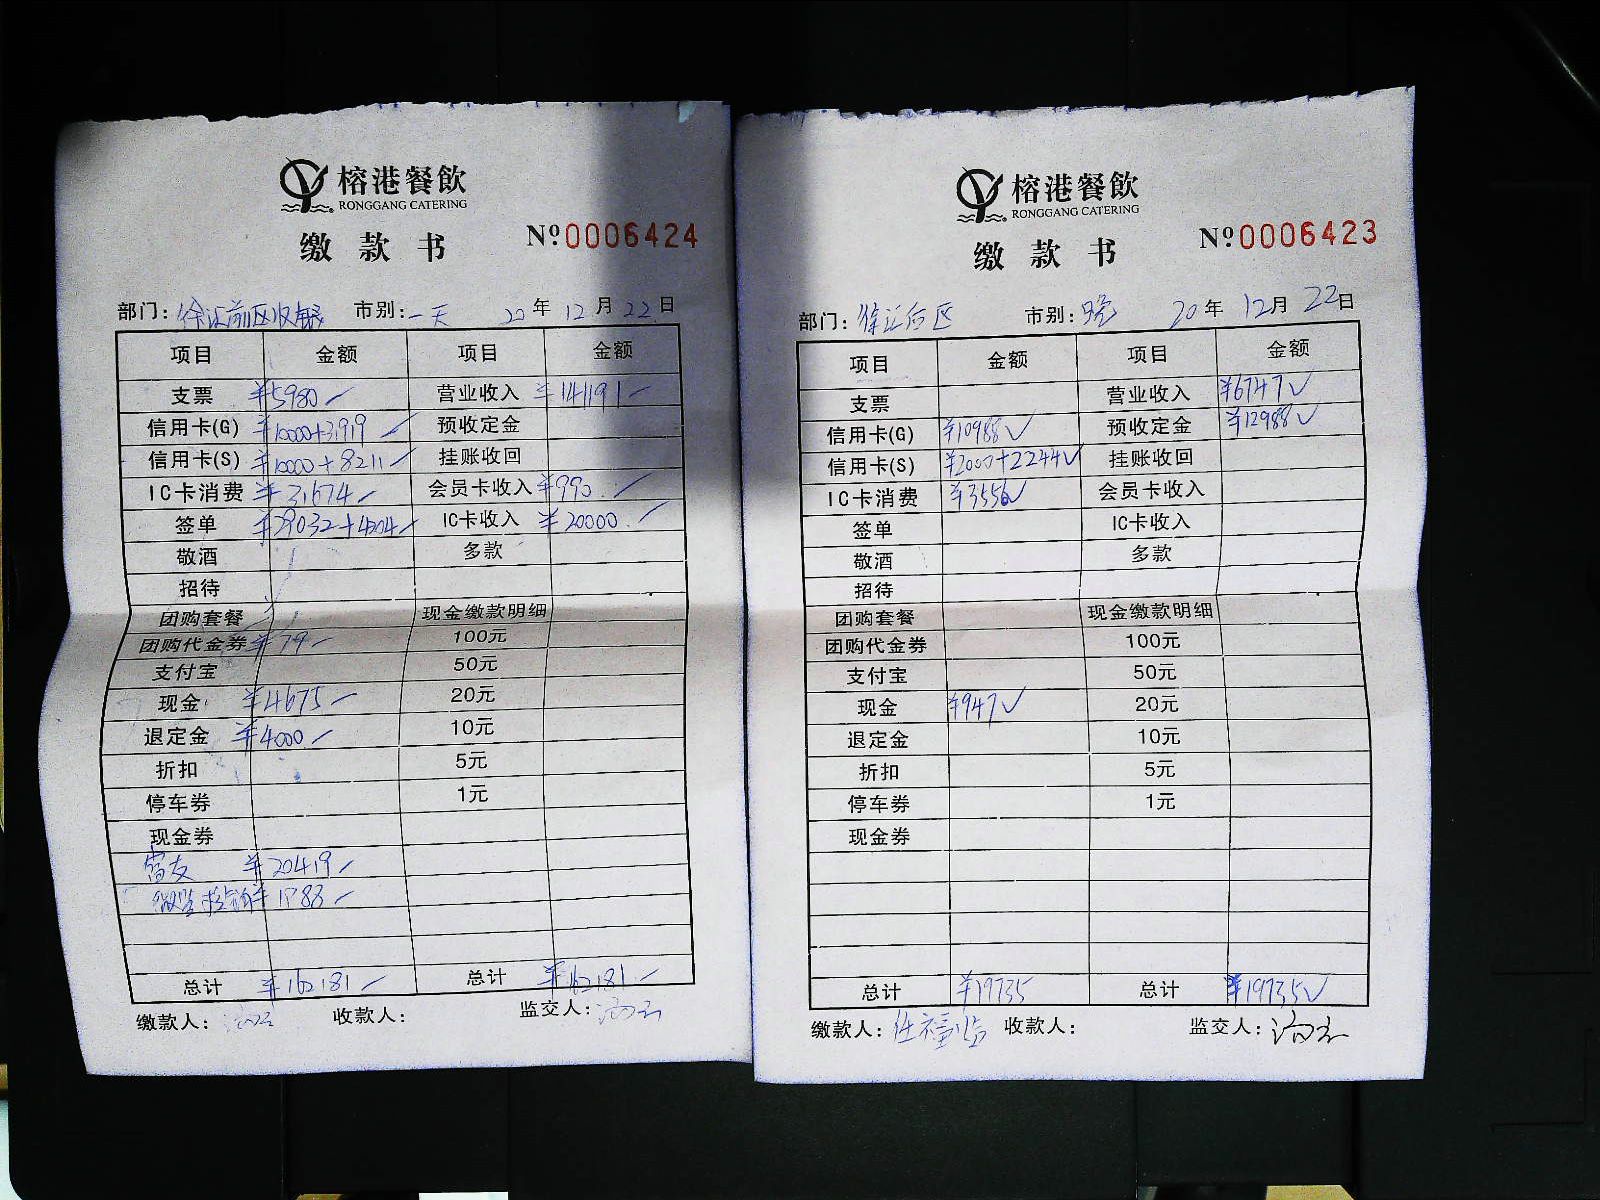 榕港餐飲
RONGGANG CATERING
缴款书
Nº0006424
部门: 徐汇前区收银 市别: 一天 20年12月22日
项目 金额 项目 金额
支票 ¥5980 营业收入 ¥141191
信用卡(G) 预收定金
信用卡(S) ¥10000+8211 挂账收回
IC卡消费 会员卡收入 ¥990
签单 IC卡收入 ¥20000
敬酒 多款
招待
团购套餐 现金缴款明细
团购代金券 ¥79 100元
支付宝 50元
现金 ¥4675 20元
退定金 ¥4000 10元
折扣 5元
停车券 1元
现金券
¥20419
¥1788
总计 ¥162181 总计 ¥162181
缴款人: 收款人: 监交人:
榕港餐飲
RONGGANG CATERING
缴款书
Nº0006423
部门: 徐汇后区 市别: 晚 20年12月22日
项目 金额 项目 金额
支票 营业收入 ¥6747
信用卡(G) ¥10988 预收定金 ¥12988
信用卡(S) ¥2000+2244 挂账收回
IC卡消费 ¥3556 会员卡收入
签单 IC卡收入
敬酒 多款
招待
团购套餐 现金缴款明细
团购代金券 100元
支付宝 50元
现金 ¥947 20元
退定金 10元
折扣 5元
停车券 1元
现金券
总计 ¥19735 总计 ¥19735
缴款人: 收款人: 监交人: